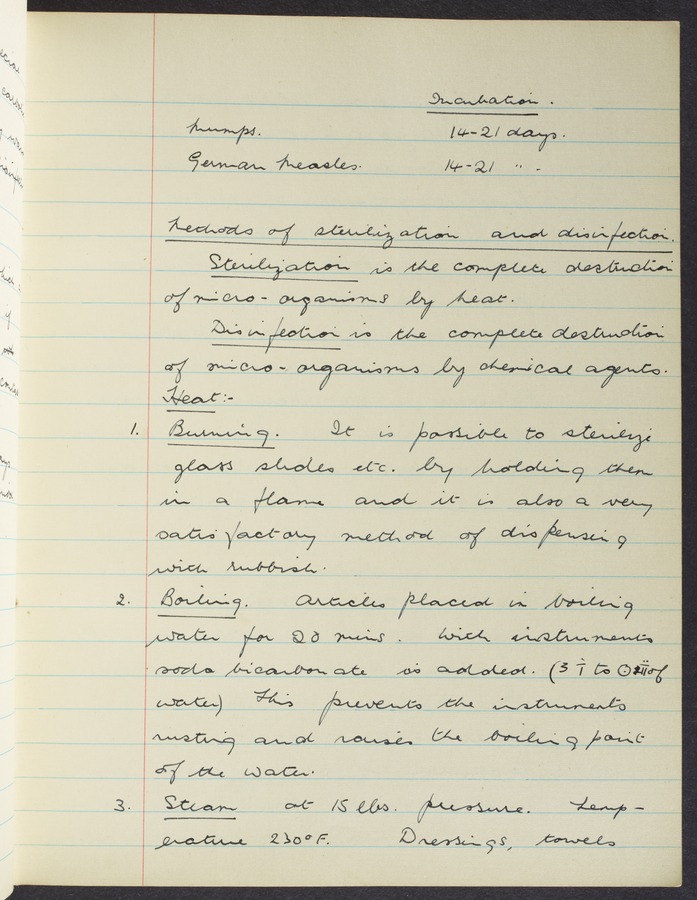 Incubation.
Mumps. 14-21 days.
German Measles. 14-21 " .
Methods of sterilization and disinfection.
Sterilization is the complete destruction
of micro-organisms by heat.
Disinfection is the complete destruction
of micro-organisms by chemical agents.
Heat:-
1. Burning. It is possible to sterilize
glass slides etc. by holding them
in a flame and it is also a very
satisfactory method of dispensing
with rubbish.
2. Boiling. Articles placed in boiling
water for 20 mins. With instruments
soda bicarbonate is added. (ʒ i to of
water) This prevents the instruments
rusting and raises the boiling point
of the water.
3. Steam at 15 lbs. pressure. Temp-
erature 230°F. Dressings, towels